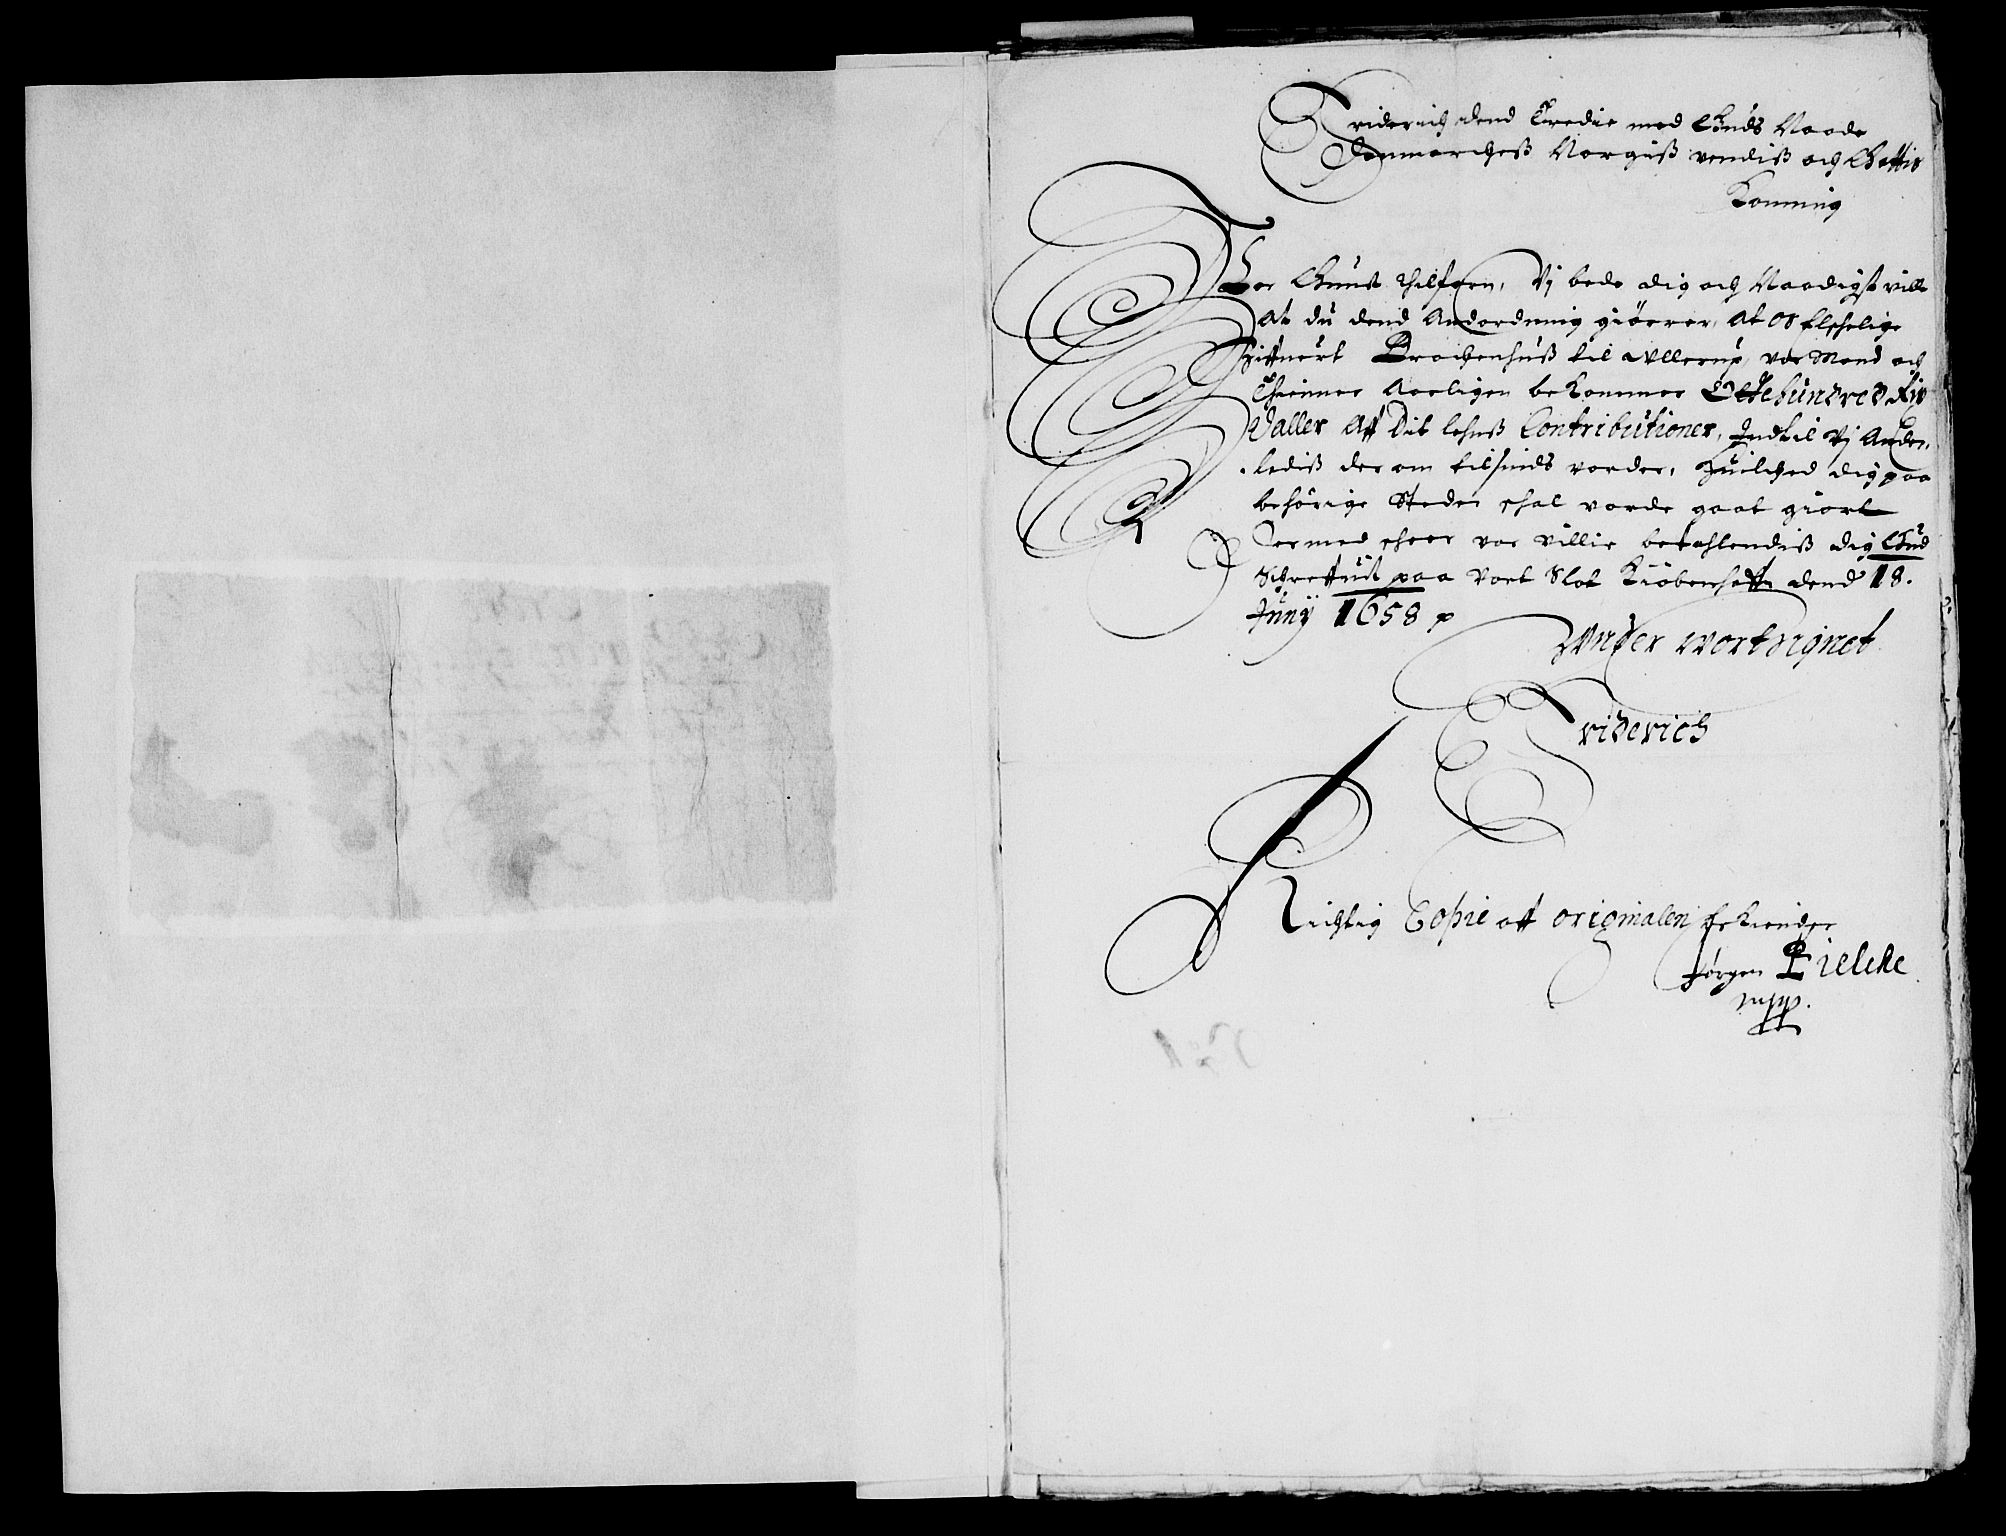 Friderich dend Tredie med Guds Naade
Danmarches Norgis vendis och Gottis
Konning
Vor Gunst tilforn, Vj bede dig och Naadigst ville
At du dend Anordning giører, At Os Elschelige
Brochenhuß til Ullerup, vor Mand och
Thienner Aarligen bekommer Ottehundred Rix
Daller Aff Dit lehns Contributioner, Indtil Vj Ander,
ledis der om tilsinds vorder, Huilched dig paa
behörige Steder schal vorde gaat giort
Dermed scheer vor villie befahlendis dig Gud
Schreffuit paa Vort Slot Kiöbenhaffn dend 18.
Junij 1658
Under vort Signet
Friderich
Richtig Copie aff originalen bekiender
Jörgen Bielcke
mpp.